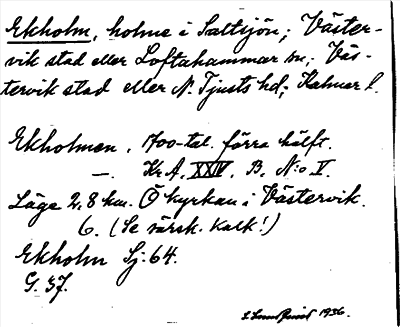 Ekholm, holme i Saltsjön; Väster-
vik stad eller Loftahammar sn; Väs-
tervik stad eller N. Tjusts hd; Kalmar l.
Ekholmen, 1700-tal. förra hälft.
—. Kr.A. XXIV. B. N:o V.
Läge 2,8 km. Ö kyrkan i Västervik.
6. (Se särsk. kalk!)
Ekholm Sj: 64.
G. 37.
1936.